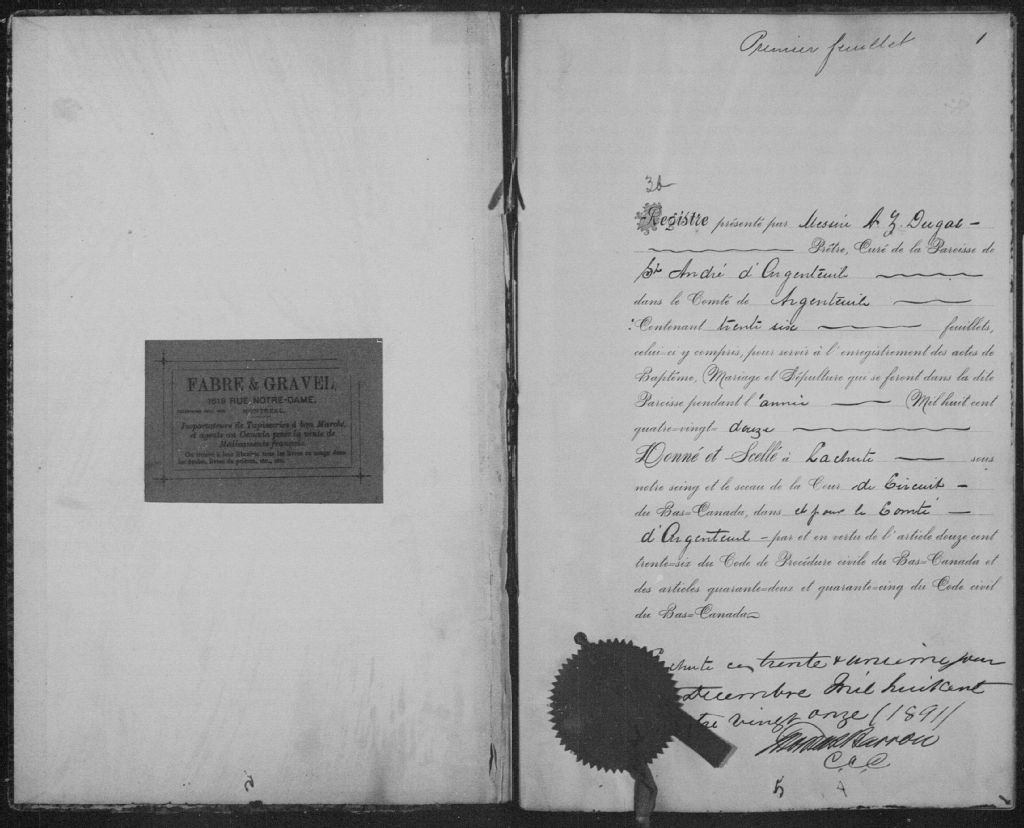 FABRE & GRAVEL,
1619 RUE NOTRE-DAME,
MONTREAL.
Importateurs de Tapisseries à bon Marché,
et agents au Canada pour la vente de
Médicaments français.
On trouve à leur librairie tous les livres en usage dans
les écoles, livres de prières, etc., etc.
Premier feuillet 1
36
Registre présenté par Messire A. Z. Dugas
Prêtre, Curé de la Paroisse de
St André d'Argenteuil
dans le Comté de Argenteuil
Contenant trente six feuillets,
celui-ci y compris, pour servir à l'enregistrement des actes de
Baptême, Mariage et Sépulture qui se feront dans la dite
Paroisse pendant l'année Mil huit cent
quatre-vingt douze
Donné et Scellé à Lachute sous
notre seing et le sceau de la Cour de Circuit
du Bas=Canada, dans et pour le Comté
d'Argenteuil par et en vertu de l'article douze cent
trente=six du Code de Procédure civile du Bas=Canada et
des articles quarante=deux et quarante=cinq du Code civil
du Bas=Canada
chute ce trente & unième jour
décembre Mil huit cent
vingt onze (1891)
Barron
C.C.C.
5